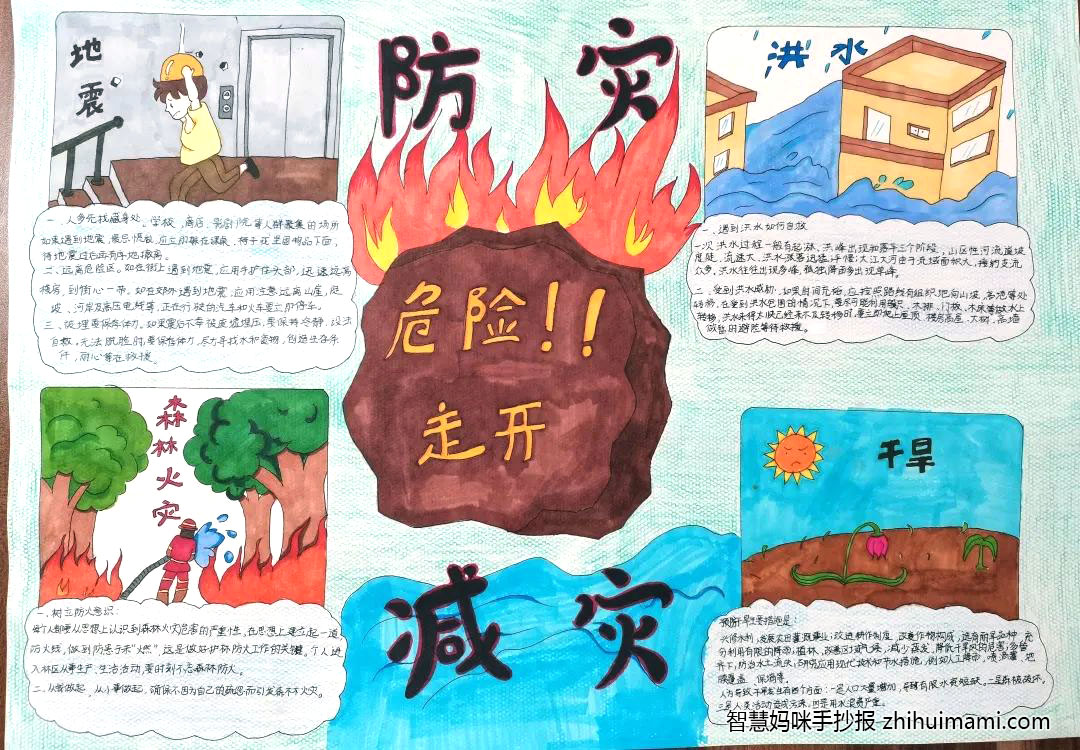 防 灾
地震
洪水
一、人多先找藏身处。学校,商店、影剧院等人群聚集的场所
如果遇到地震,最忌慌乱,应立即躲在课桌、椅子或坚固物品下面,
待地震过后再有序地撤离。
二、远离危险区。如在街上遇到地震,应用手护住头部,迅速远离
楼房,到街心一带。如在郊外遇到地震,应注意远离山崖,陡
坡、河岸及高压电线等,正在行驶的汽车和火车要立即停车。
三、被埋要保存体力。如果震后不幸被废墟埋压,要保持冷静,设法
自救。无法脱险时,要保存体力,尽力寻找水和食物,创造生存条
件,耐心等在救援。
一、遇到洪水如何自救
一次洪水过程一般有起涨、洪峰出现和落平三个阶段,山区性河流道坡
度陡,流速大、洪水涨落迅猛;大江大河由于流域面积大,接纳支流
众多,洪水往往出现多峰,
二、受到洪水威胁,如果时间充裕,应按照路线有组织地向山坡,高地等处
转移,在受到洪水包围的情况下,要尽可能利用船只、木排、门板、木床等做水上
转移,洪水来得太快已经来不及转移时,要立即爬上屋顶、楼房高屋、大树、高墙
做暂时避险等待救援。
危险!!
走开
森林火灾
干旱
一、树立防火意识:
每个人都要从思想上认识到森林火灾危害的严重性,在思想上建立起一道
防火线,做到防患于未“燃”,这是做好护林防火工作的关键,个人进
入林区从事生产、生活活动,要时刻不忘森林防火。
二、从我做起,从小事做起,确保不因为自己的疏忽而引发森林火灾。
减 灾
预防干旱主要措施是:
兴修水利,发展农田灌溉事业;改进耕作制度,改变作物构成,选育耐旱品种,充
分利用有限的降雨;植林,改善区域气候,减少蒸发,降低干旱风的危害;
防治水土流失;研究应用现代技术和节水措施,例如人工降雨,喷滴灌、地
膜覆盖、保墒等。
一是人口大量增加,导致有限水资源短缺。二是森林被破坏。
三是人类活动造成污染,
智慧妈咪手抄报 zhihuimami.com